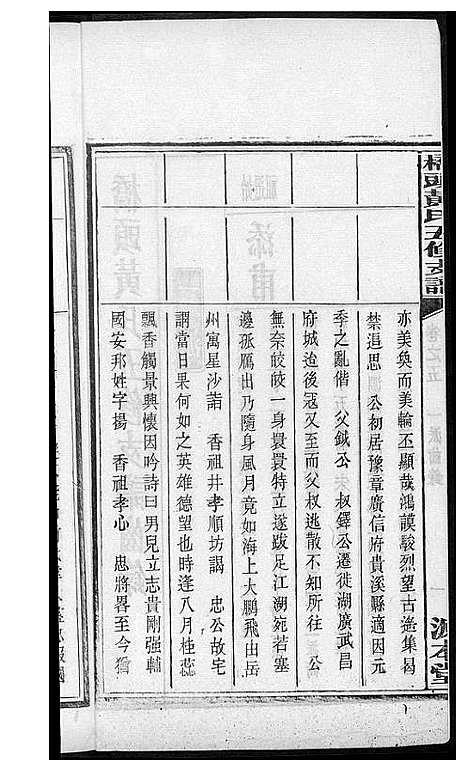 橋頭黃氏五修支譜
亦美奐而美輪丕顯哉鴻謨駿烈望古遙集曷
禁追思 公初居豫章廣信府貴溪縣適因元
季之亂偕 父鉞公 叔鐸公遷徙湖廣武昌
府城迨後冦又至而父叔逃散不知所往 公
無奈皎皎一身睘睘特立遂跋足江湖宛若塞
邊孤鴈出乃隨身風月竟如海上大鵬飛由岳
州寓星沙詣 香祖井孝順坊謁 忠公故宅
謂當日果何如之英雄德望也時逢八月桂蕊
飄香觸景興懷因吟詩曰男兒立志貴剛强輔
國安邦姓字揚 香祖孝心 忠將畧至今猶